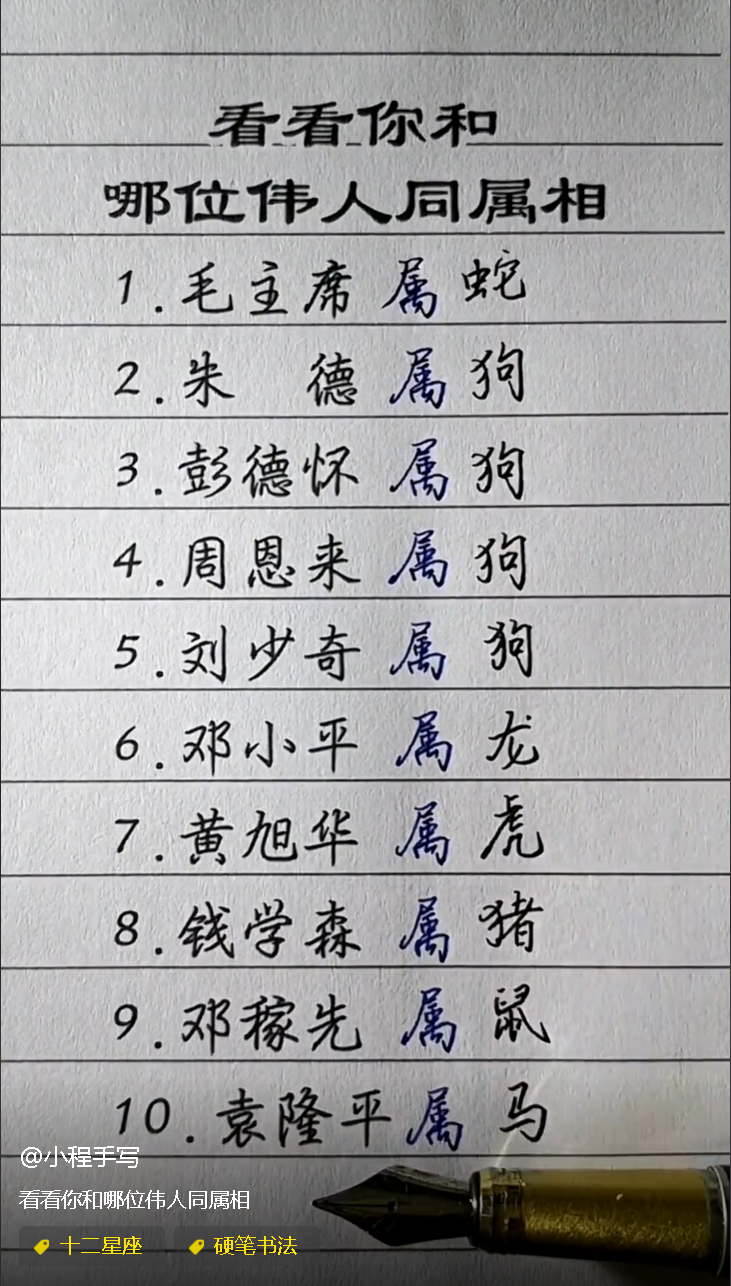 看看你和
哪位伟人同属相
1.毛主席 属 蛇
2.朱 德 属 狗
3.彭德怀 属 狗
4.周恩来 属 狗
5.刘少奇 属 狗
6.邓小平 属 龙
7.黄旭华 属 虎
8.钱学森 属 猪
9.邓稼先 属 鼠
10.袁隆平 属 马
@小程手写
看看你和哪位伟人同属相
十二星座 硬笔书法